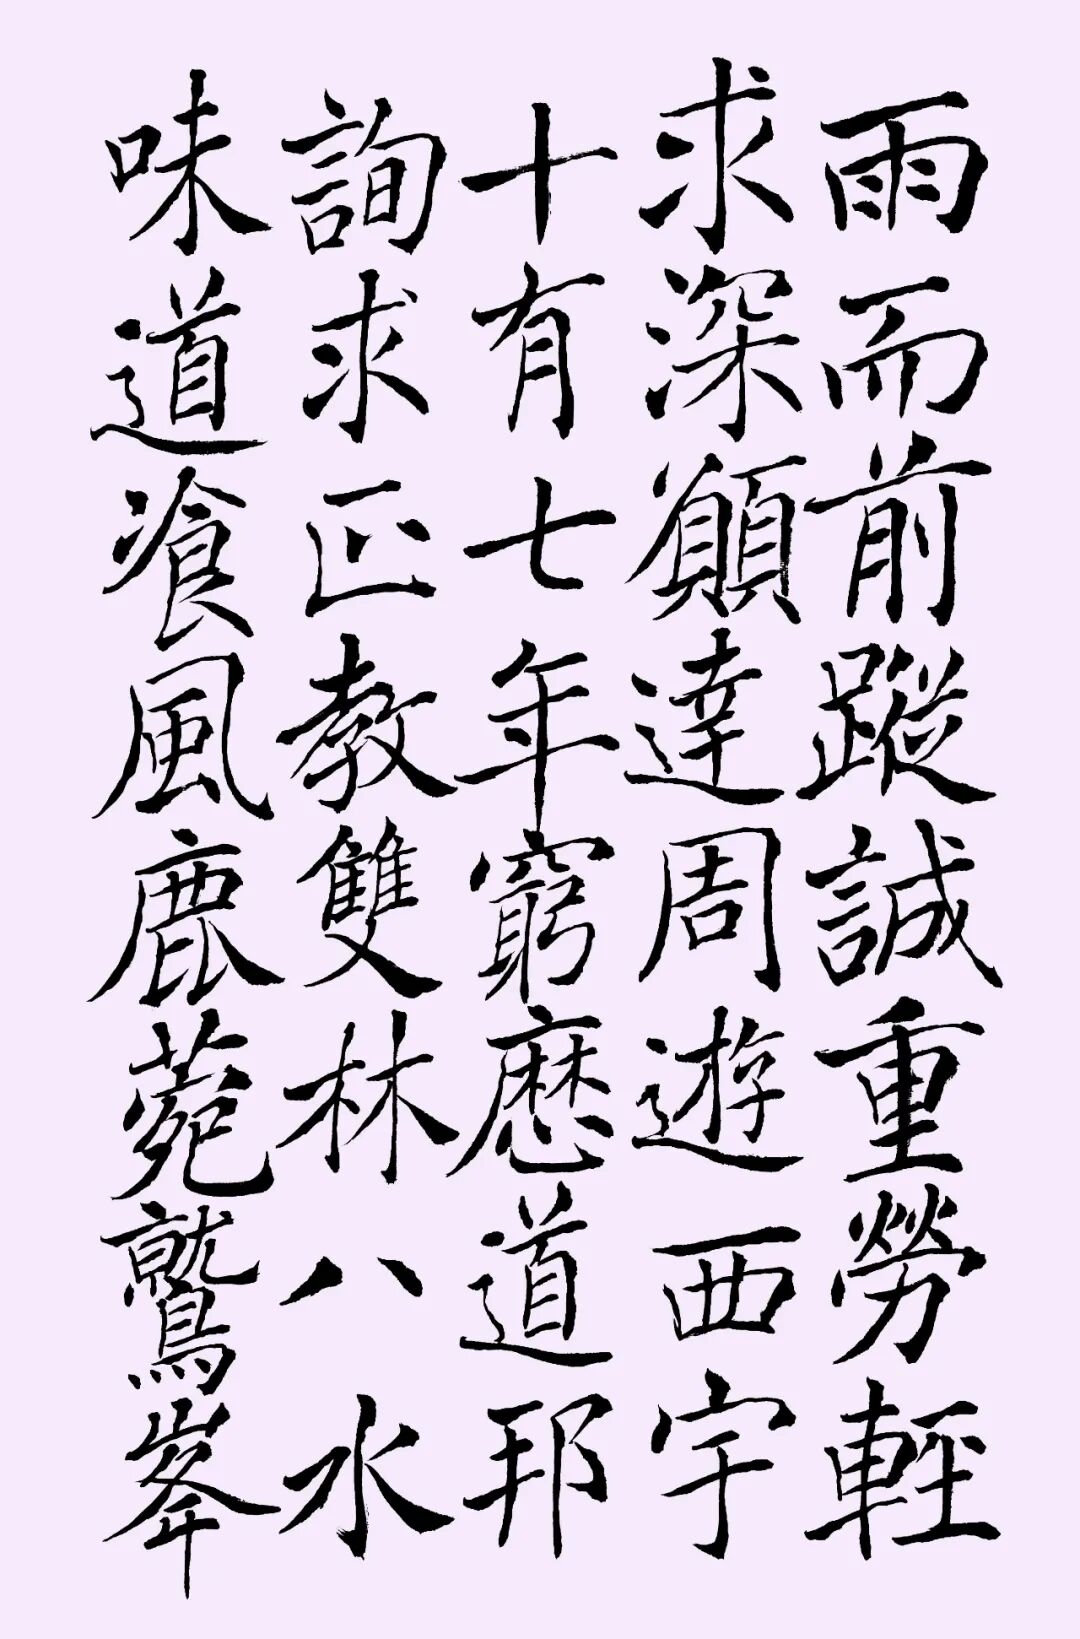 雨而前蹤誠重勞輕
求深願達周遊西宇
十有七年窮歷道邦
詢求正教雙林八水
味道飡風鹿菀鷲峯